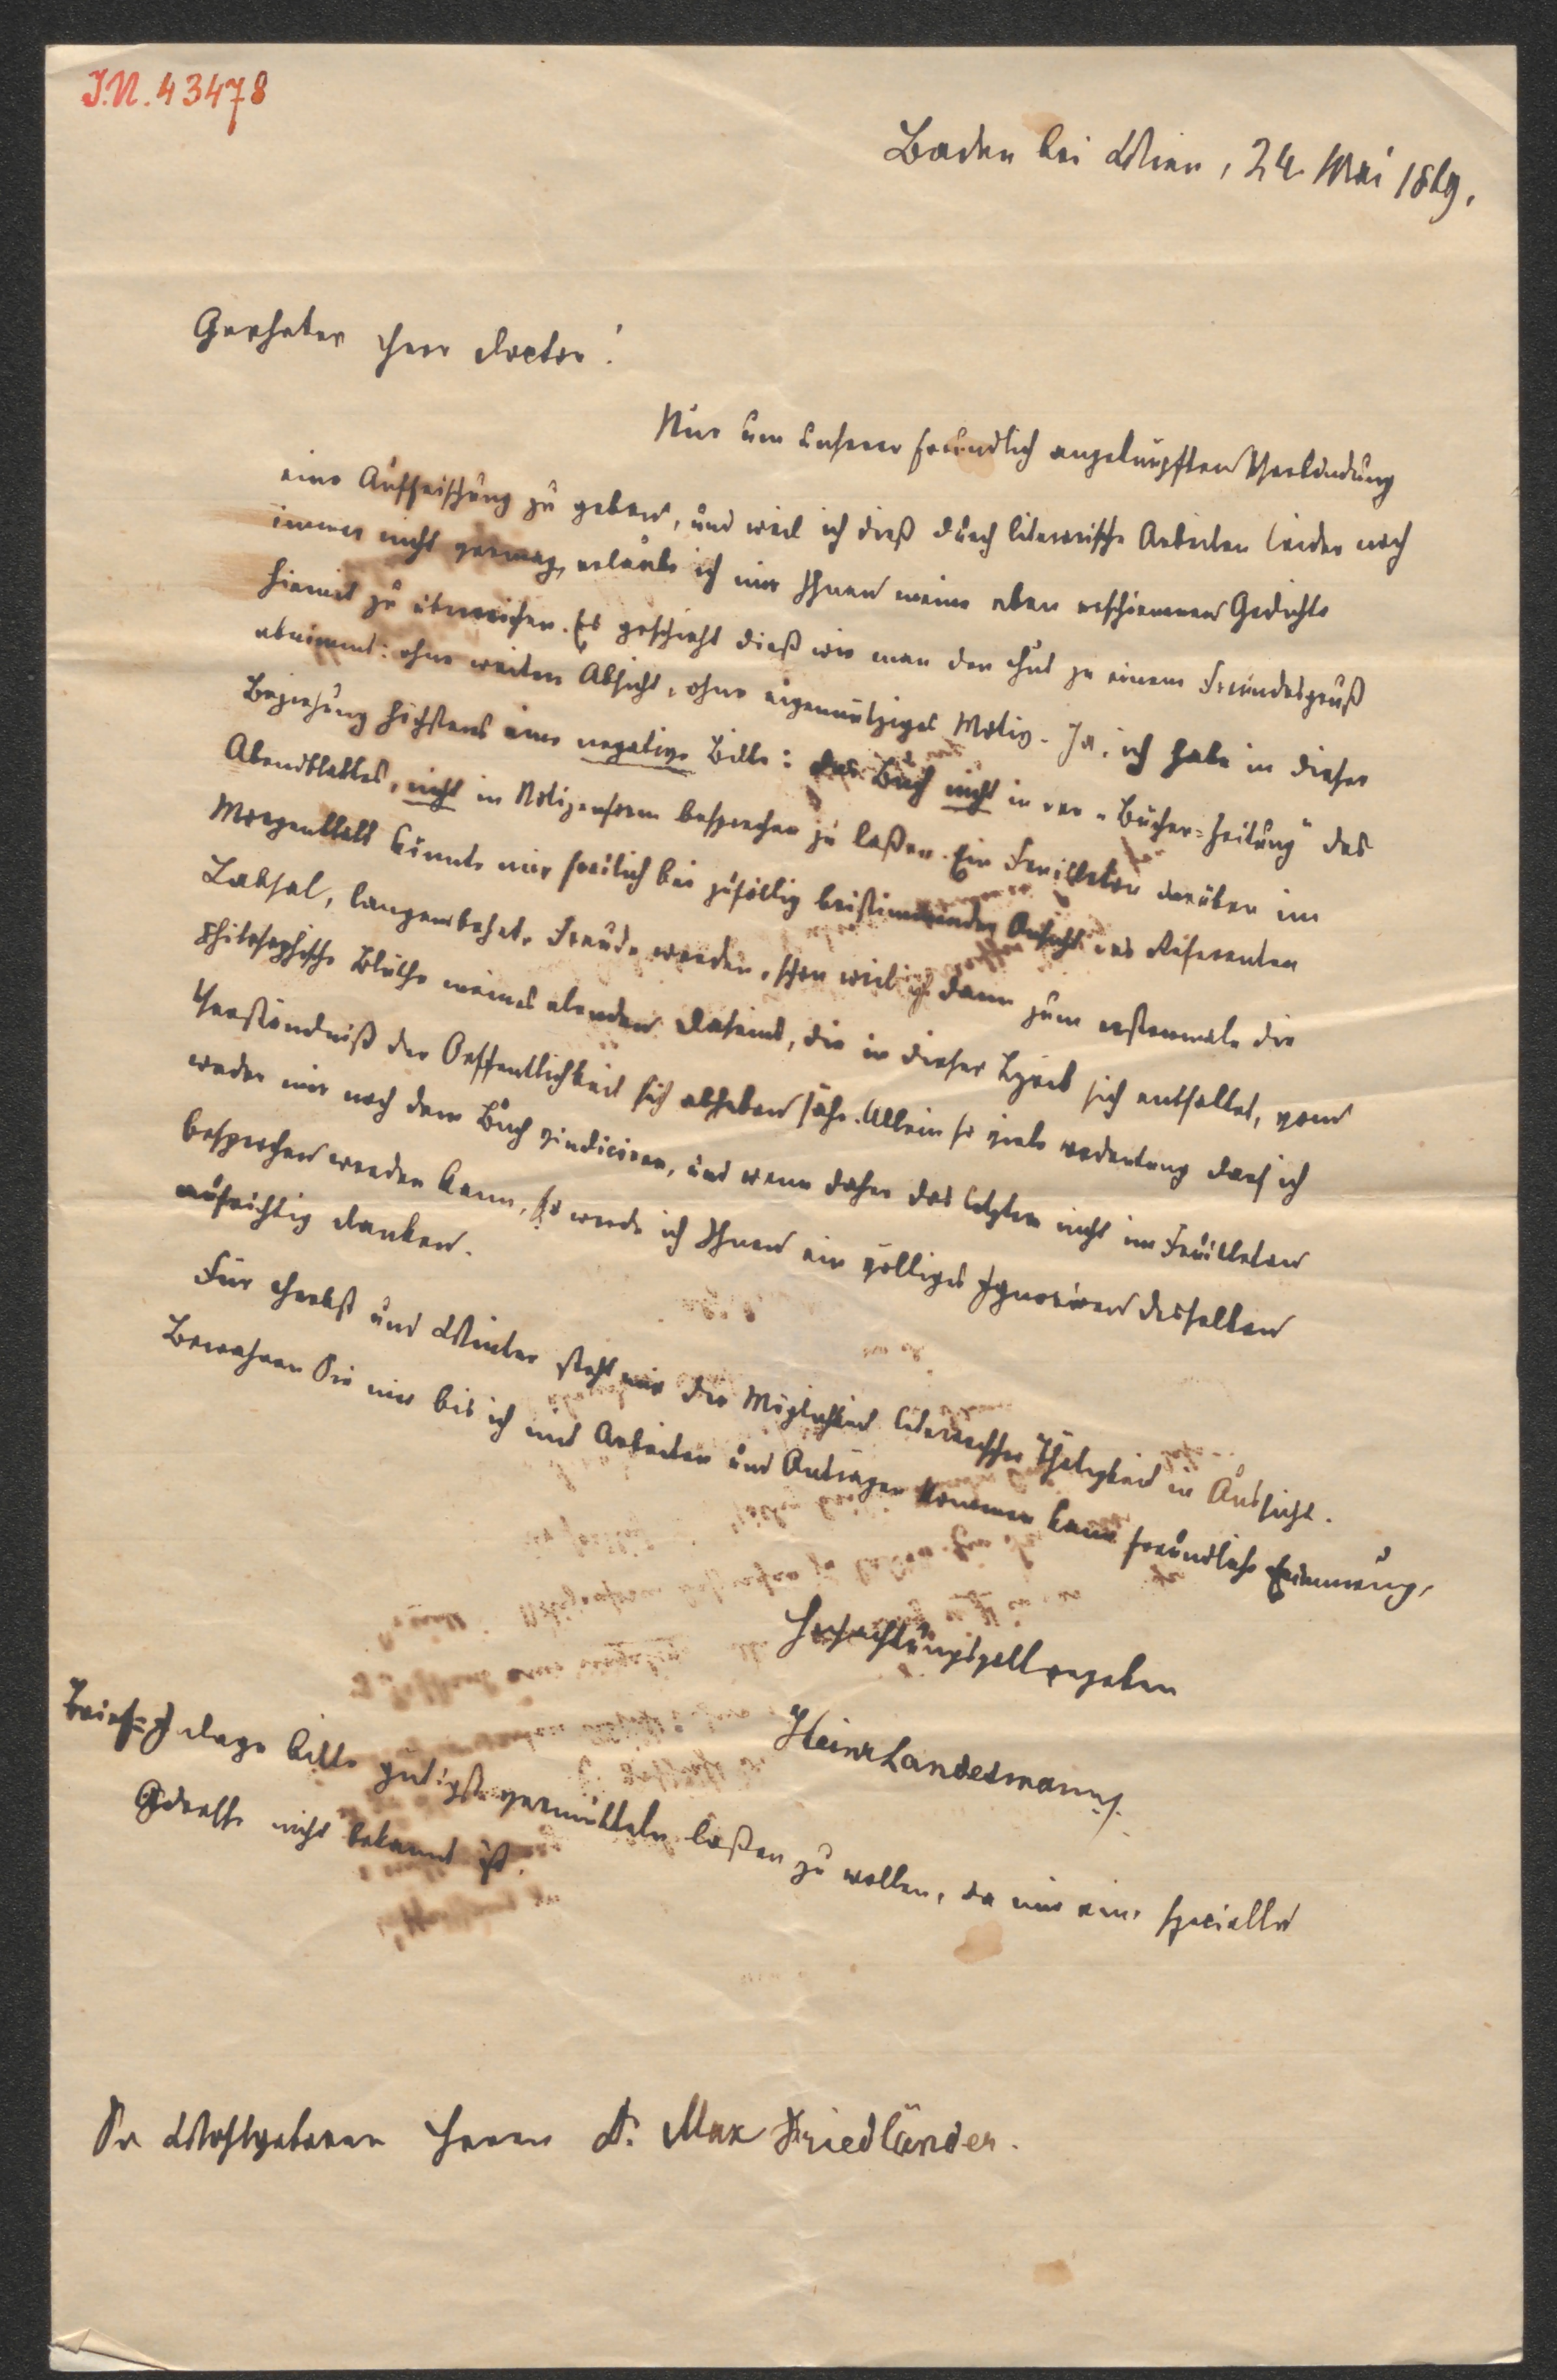 J.N. 43478
Baden bei Wien, 24. Mai 1869.
Geehrter Herr Doctor!
Nur um unserer freundlich angeknüpften Verbindung
eine Auffrischung zu geben, und weil ich dieß durch literarische Arbeiten leider noch
immer nicht vermag, erlaube ich mir Ihnen meine eben erschienenen Gedichte
hiemit zu überreichen. Es geschieht dieß wie man den Hut zu einem Freundesgruß
abnimmt: ohne weitere Absicht, ohne eigennütziges Motiv. Ja, ich habe in dieser
Beziehung höchstens eine negative Bitte: das Buch nicht in der „Bücher=Zeitung" des
Abendblattes, nicht in Notizenform besprechen zu laßen. Ein Feuilleton darüber im
Morgenblatt könnte mir freilich bei zufällig beistimmender Ansicht des Referenten
Labsal, langentbehrte Freude werden, schon weil ich dann zum erstenmale die
philosophische Blüthe meines elenden Daseins, die in dieser Lyrik sich entfaltet, vom
Verständniß der Oeffentlichkeit sich abheben sähe. Allein so viele Bedeutung darf ich
weder mir noch dem Buch vindiciren, und wenn daher das letztere nicht im Feuilleton
besprochen werden kann, so werde ich Ihnen ein völliges Ignoriren desselben
aufrichtig danken.
Für Herbst und Winter steht mir die Möglichkeit literarischer Thätigkeit in Aussicht.
Bewahren Sie mir bis ich mit Arbeiten und Anträgen kommen kann freundliche Erinnerung.
Hochachtungsvoll ergeben
Heinr Landesmann
bitte gütigst vermitteln laßen zu wollen, da mir eine specielle
Adresse nicht bekannt ist.
Sr Wohlgeboren Herrn Dr. Max Friedländer.